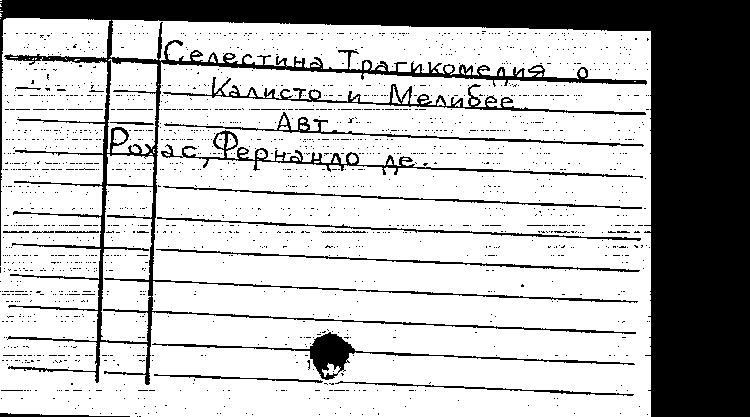 Селестина. Трагикомедия о
Калисто и Мелибее.
Авт.:
Рохас, Фернандо де.